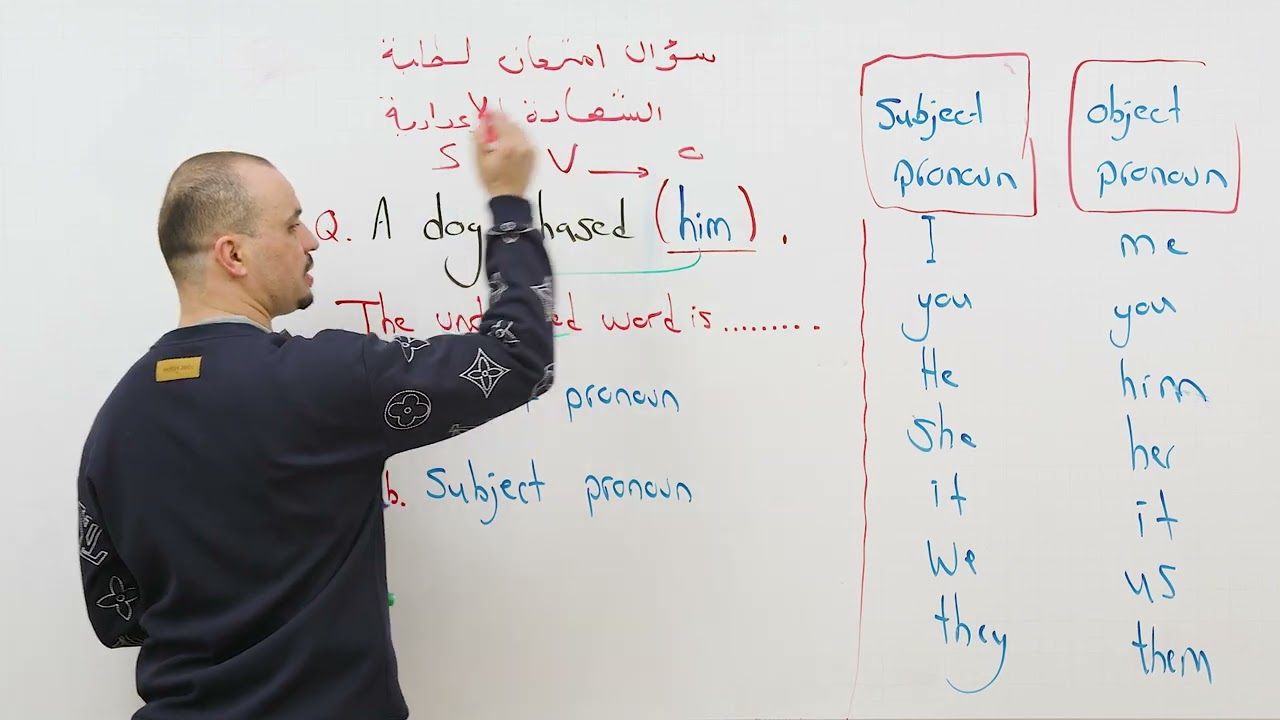 سؤال امتحان لطلبة
الشهادة الإعدادية
S V → O
Q. A dog chased (him).
The underlined word is .........
pronoun
b. Subject pronoun
Subject pronoun
I
you
He
she
it
we
they
object pronoun
me
you
him
her
it
us
them